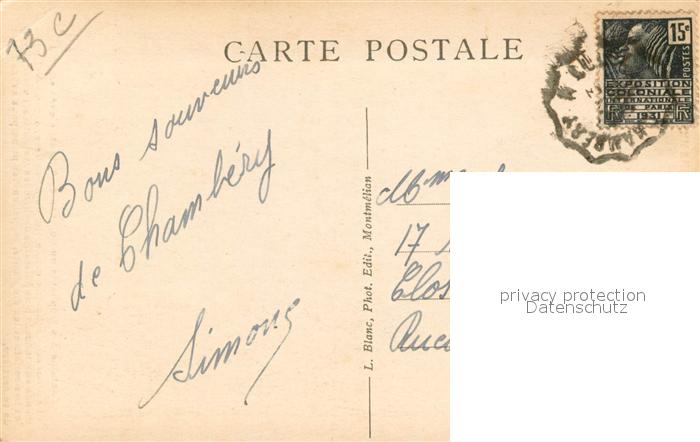 73 c
CARTE POSTALE
15c
POSTES
EXPOSITION
COLONIALE
INTERNATIONALE
DE PARIS
1931
Bons souvenirs
de Chambéry
Simone
L. Blanc, Phot. Edit., Montmélian
Mme
17
Clos
privacy protection
Datenschutz